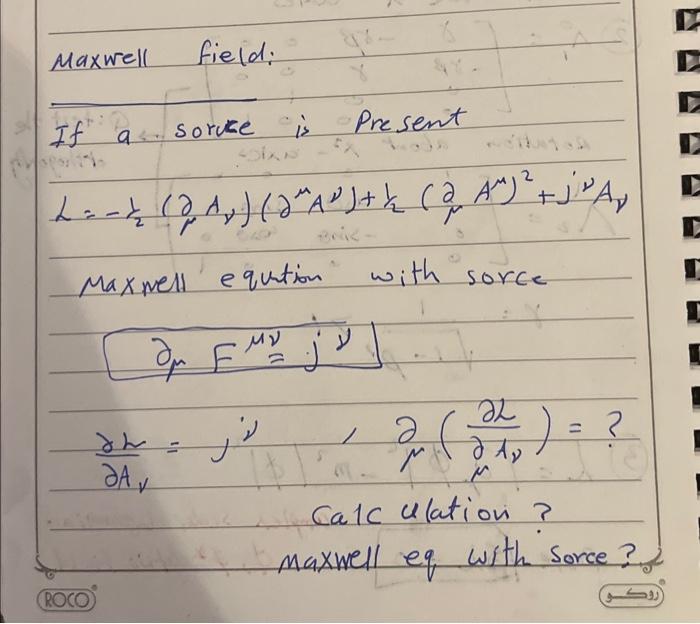 Maxwell field:
If a sorce is Present
L = -½ (∂_μ A_ν)(∂^μ A^ν) + ½ (∂_μ A^μ)² + j^ν A_ν
Maxwell eqution with sorce
∂_μ F^{μν} = j^ν
∂L/∂A_ν = j^ν , ∂_μ (∂L/∂_μ A_ν) = ?
Calculation ?
Maxwell eq with Sorce ?
ROCO
روكو